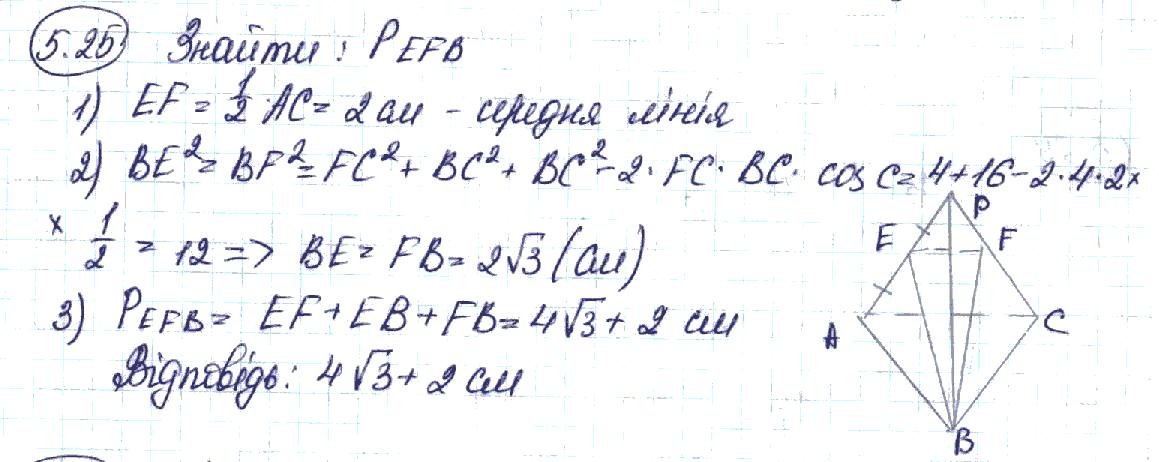 5.25 Знайти: P_EFB
1) EF = 1/2 AC = 2 см - середня лінія
2) BE² = BF² = FC² + BC² + BC² - 2 · FC · BC · cos C = 4 + 16 - 2 · 4 · 2 ×
× 1/2 = 12 => BE = FB = 2√3 (см)
3) P_EFB = EF + EB + FB = 4√3 + 2 см
Відповідь: 4√3 + 2 см
P
E F
A C
B